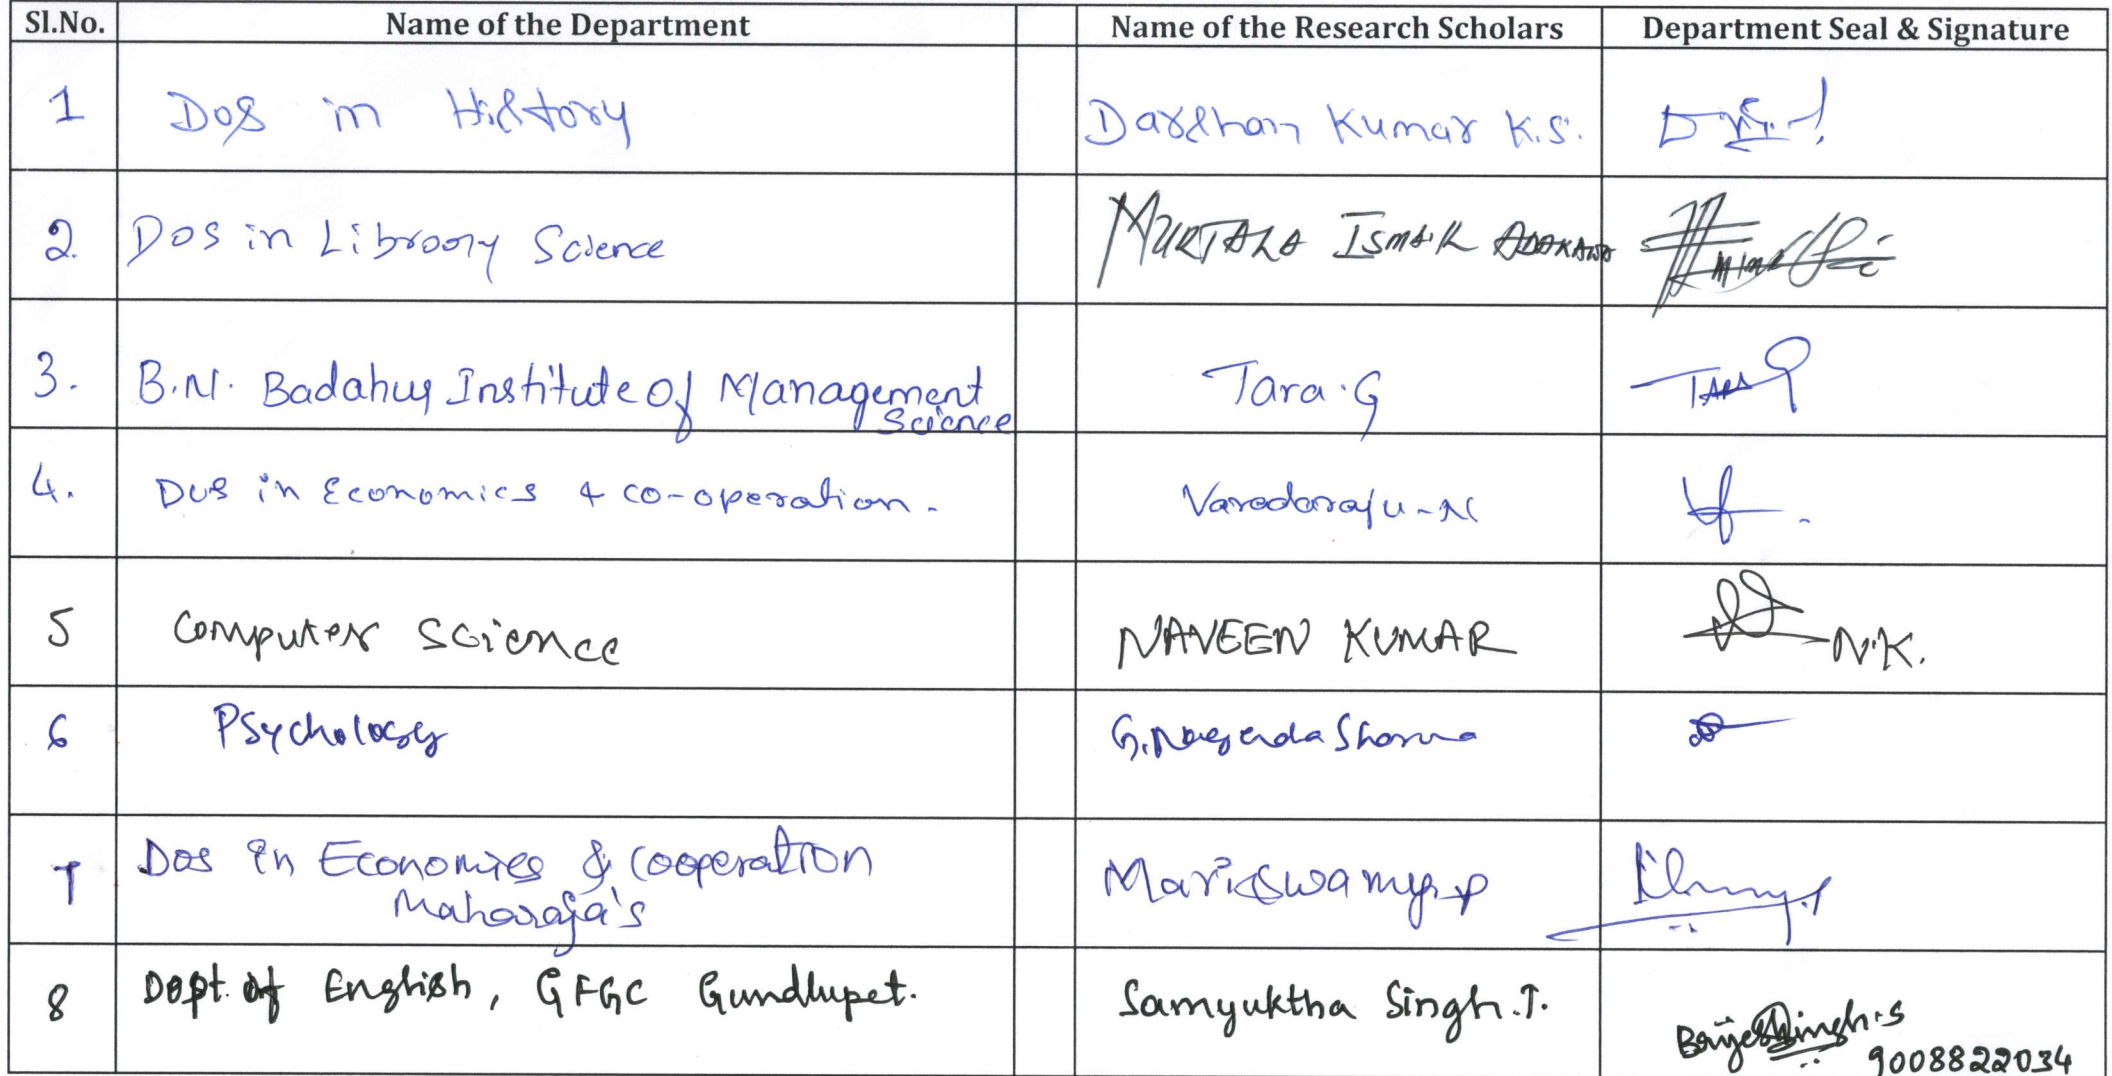 Sl.No. Name of the Department Name of the Research Scholars Department Seal & Signature
1 DoS in History Darshan Kumar K.S.
2. DoS in Library Science MURTALA ISMAIL ADAKAWA
3. B.N. Badahuy Institute of Management
Science Tara.G TARA G
4. DoS in Economics & co-operation. Varadaraju-N
5 Computer Science NAVEEN KUMAR N.K.
6 Psychology G.Nagenda Sharma
7 Dos in Economics & Cooperation
Maharaja's Mariswamy.P
8 Dept. of English, GFGC Gundlupet. Samyuktha Singh.J. BrijeshSingh.S
9008822034